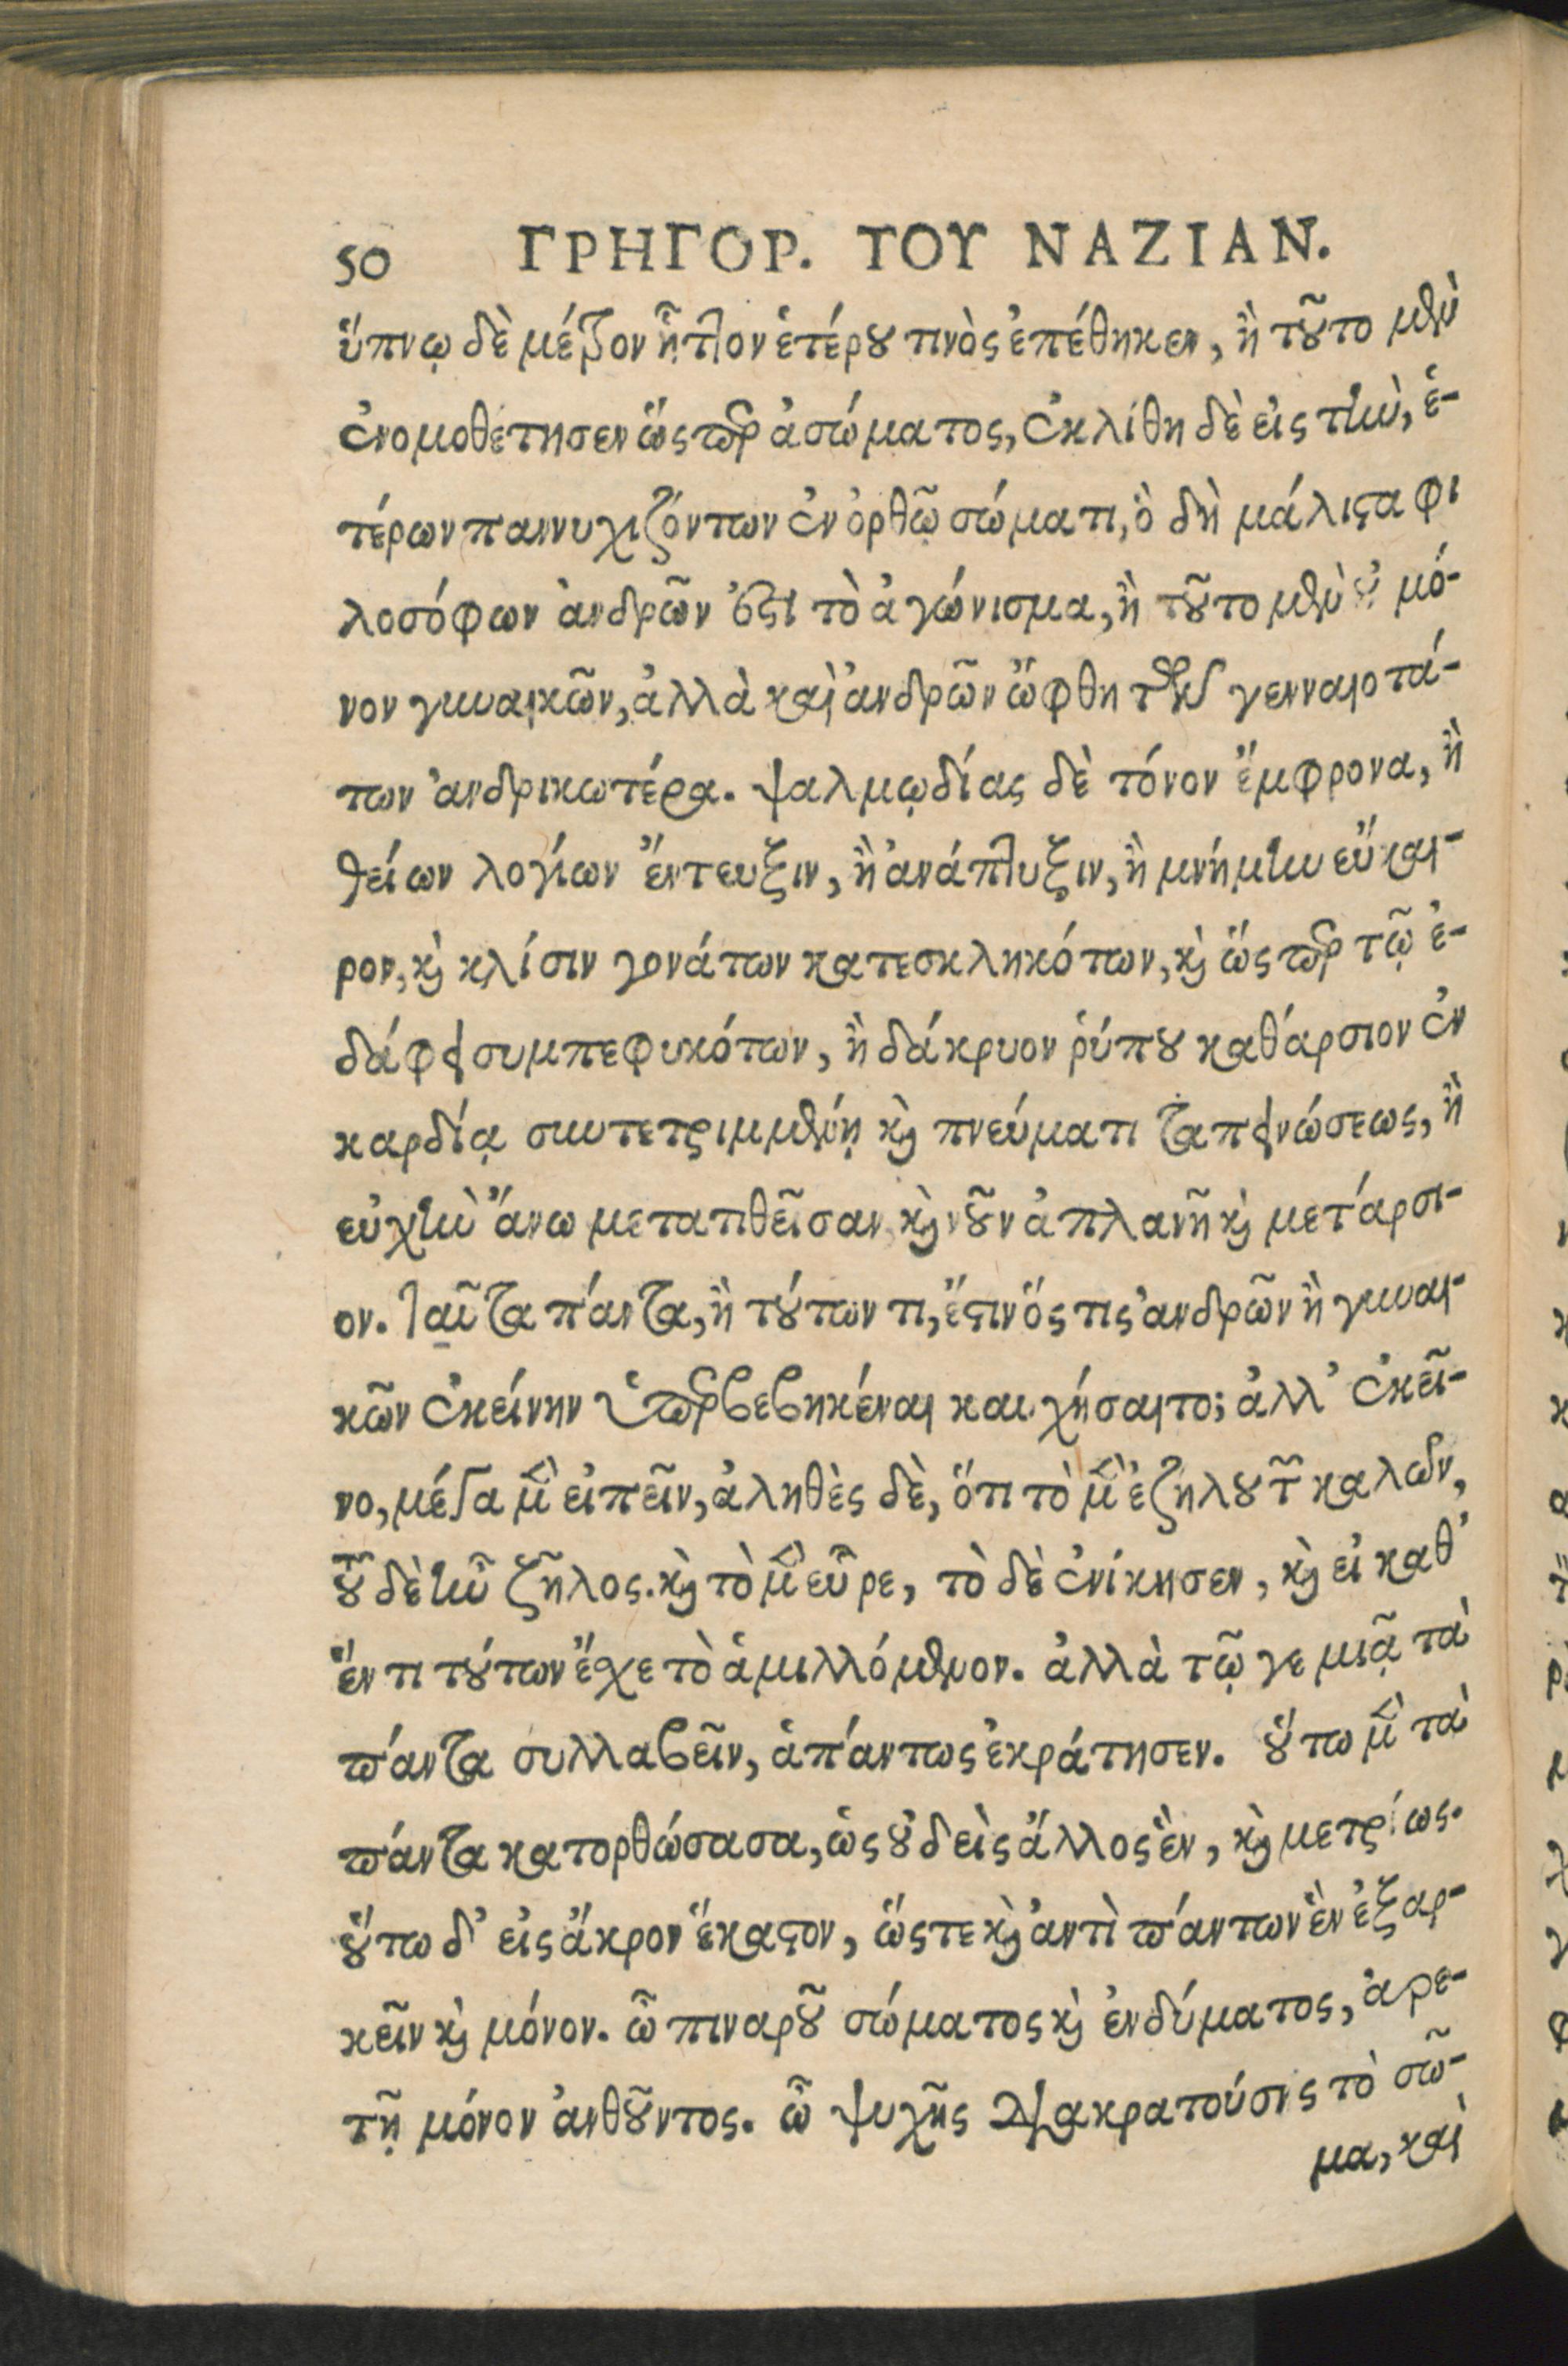 50 ΓΡΗΓΟΡ. ΤΟΥ ΝΑΖΙΑΝ.
ὕπνῳ δὲ μέτρον ἧττον ἑτέρου τινὸς ἐπέθηκεν, ἢ τοῦτο μὲν
ἐνομοθέτησεν ὥσπερ ἀσώματος, ἐκλίθη δὲ εἰς τὴν, ἑ-
τέρων παννυχιζόντων ἐν ὀρθῷ σώματι, ὃ δὴ μάλιστα φι
λοσόφων ἀνδρῶν ἐστι τὸ ἀγώνισμα, ἢ τοῦτο μὲν οὐ μό-
νον γυναικῶν, ἀλλὰ καὶ ἀνδρῶν ὤφθη τῶν γενναιοτά-
των ἀνδρικωτέρα. ψαλμῳδίας δὲ τόνον ἔμφρονα, ἢ
θείων λογίων ἔντευξιν, ἢ ἀνάπτυξιν, ἢ μνήμην εὔκαι-
ρον, καὶ κλίσιν γονάτων κατεσκληκότων, καὶ ὥσπερ τῷ ἐ-
δάφει συμπεφυκότων, ἢ δάκρυον ῥύπου καθάρσιον ἐν
καρδίᾳ συντετριμμένῃ καὶ πνεύματι ταπεινώσεως, ἢ
εὐχὴν ἄνω μετατιθεῖσαν καὶ νοῦν ἀπλανῆ καὶ μετάρσι-
ον. Ταῦτα πάντα, ἢ τούτων τι, ἔστιν ὅς τις ἀνδρῶν ἢ γυναι-
κῶν ἐκείνην ὑπερβεβηκέναι καυχήσαιτο; ἀλλ' ἐκεῖ-
νο, μέγα μὲν εἰπεῖν, ἀληθὲς δὲ, ὅτι τὸ μὲν ἐζήλου τῶν καλῶν,
τοῦ δὲ ἦν ζῆλος. καὶ τὸ μὲν εὗρε, τὸ δὲ ἐνίκησεν, καὶ εἰ καθ'
ἕν τι τούτων ἔσχε τὸ ἁμιλλόμενον. ἀλλὰ τῷ γε μιᾷ τὰ
πάντα συλλαβεῖν, ἁπάντως ἐκράτησεν. οὕτω μὲν τὰ
πάντα κατορθώσασα, ὡς οὐδεὶς ἄλλος ἓν, καὶ μετρίως.
οὕτω δ' εἰς ἄκρον ἕκαστον, ὥστε καὶ ἀντὶ πάντων ἓν ἐξαρ-
κεῖν καὶ μόνον. ὦ πιναροῦ σώματος καὶ ἐνδύματος, ἀρε-
τῇ μόνον ἀνθοῦντος. ὦ ψυχῆς διακρατούσης τὸ σῶ-
μα, καὶ